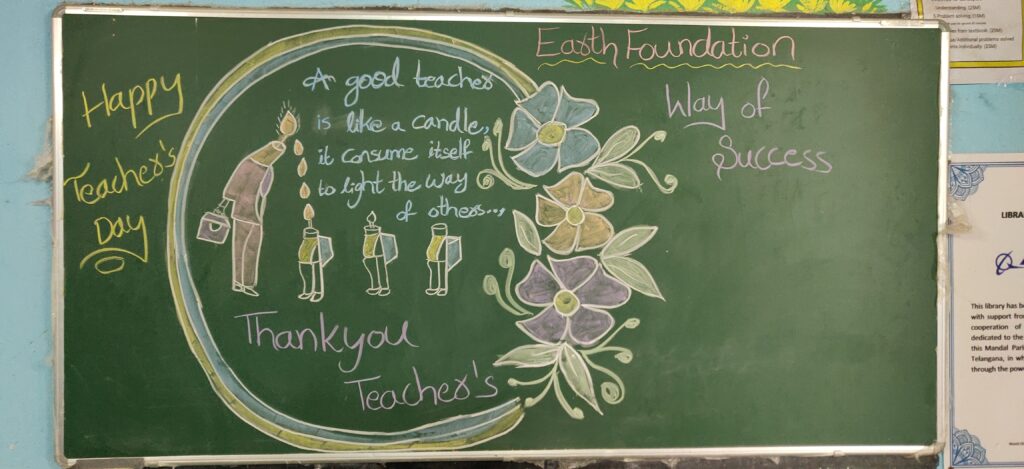 Happy
Teacher's
Day
A good teacher
is like a candle,
it consume itself
to light the way
of others...,
Thankyou
Teacher's
Earth Foundation
Way of
Success
Understanding. (25M)
Problem solving (15M)
from textbook. (20M)
/Additional problems solved
individually (25M)
LIBRA
This library has b
with support fro
cooperation of
dedicated to the
this Mandal Pari
Telangana, in wh
through the powe